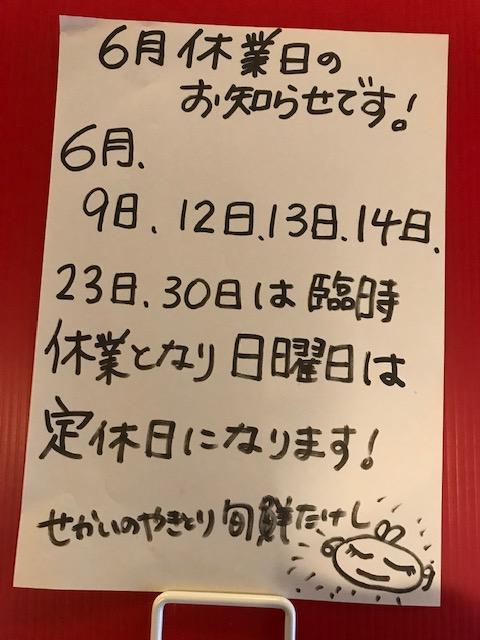 6月休業日の
お知らせです!
6月、
9日、12日、13日、14日、
23日、30日は臨時
休業となり日曜日は
定休日になります!
せかいのやきとり旬鮮だけし